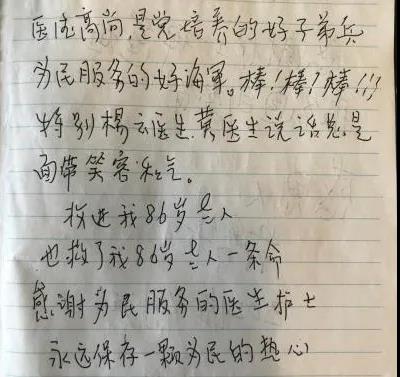 医德高尚,是党培养的好子弟兵
为民服务的好海军。棒!棒!棒!!!
特别楊云医生.黄医生说话总是
面带笑容和气。
救进我86岁老人
也救了我86岁老人一条命
感谢为民服务的医生护士
永远保存一颗为民的热心